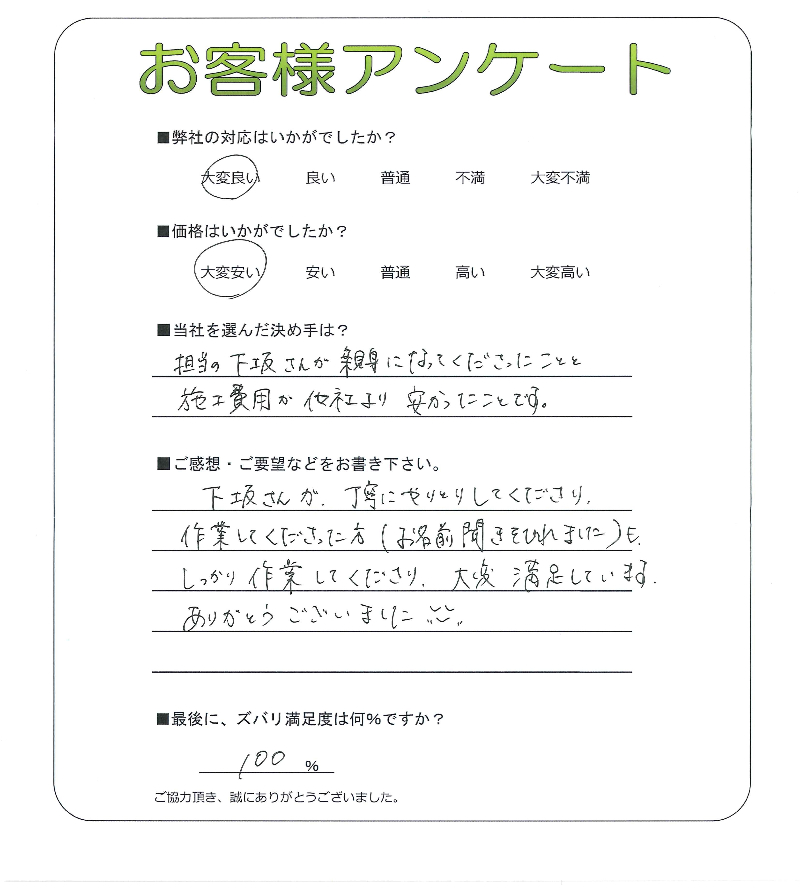 お客様アンケート
■弊社の対応はいかがでしたか？
大変良い 良い 普通 不満 大変不満
■価格はいかがでしたか？
大変安い 安い 普通 高い 大変高い
■当社を選んだ決め手は？
担当の下坂さんが親身になってくださったことと
施工費用が他社より安かったことです。
■ご感想・ご要望などをお書き下さい。
下坂さんが、丁寧にやりとりしてくださり、
作業してくださった方(お名前聞きそびれました)も、
しっかり作業してくださり、大変満足しています。
ありがとうございました
■最後に、ズバリ満足度は何％ですか？
100 %
ご協力頂き、誠にありがとうございました。